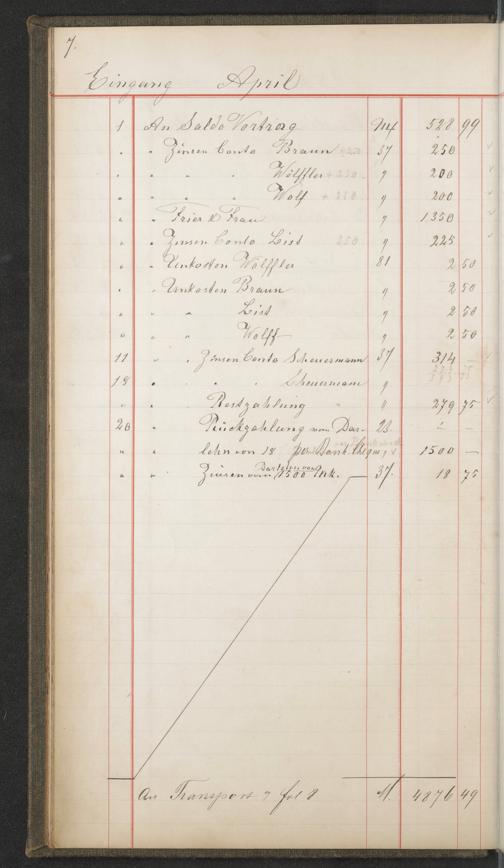 7.
Eingang April
1 An Saldo Vortrag 528 99
" " Zinsen Conto Braun 37 250
" " " " Wölffler " 200
" " " " Wolf " 200
" " Frau " 1350
" " Zinsen Conto List " 225
" " Unkosten Wölffler 81 2 50
" " Unkosten Braun " 2 50
" " " List " 2 50
" " " Wolff " 2 50
11 " " Zinsen Conto Scheuermann 37 314 —
18 " " " Scheuermann "
" " Restzahlung " " 279 75
26 " Rückzahlung vom Dar- 23
" " lehn von 18 per Bank 1500 —
" " Zinsen vom Darlehn von 1500 Mk. 37. 18 75
An Transport fol 8 M. 4876 49